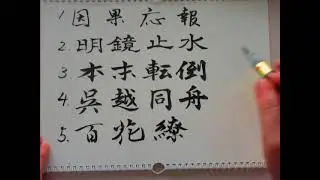 1. 因果応報
2. 明鏡止水
3. 本末転倒
4. 呉越同舟
5. 百花繚